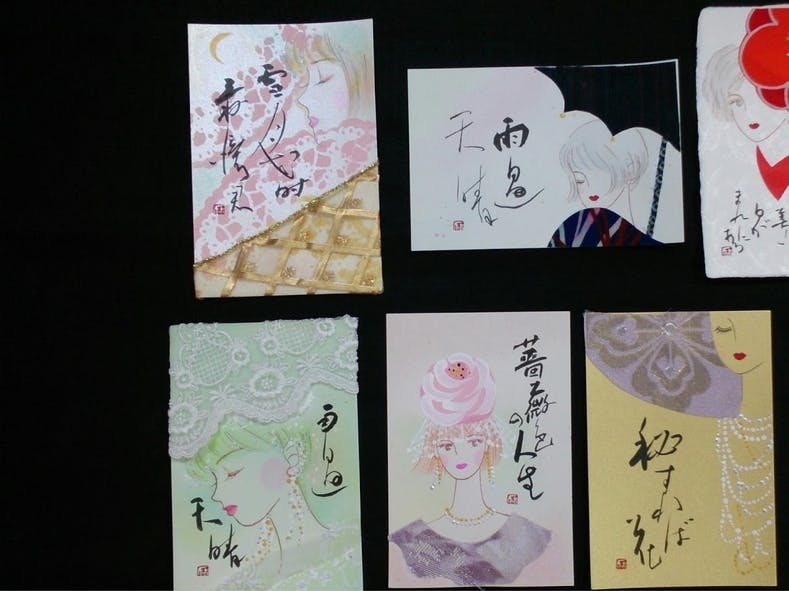 雪月花時
最憶君
雨過
天晴
雨過
天晴
薔薇色
の人生
秘すれば
花